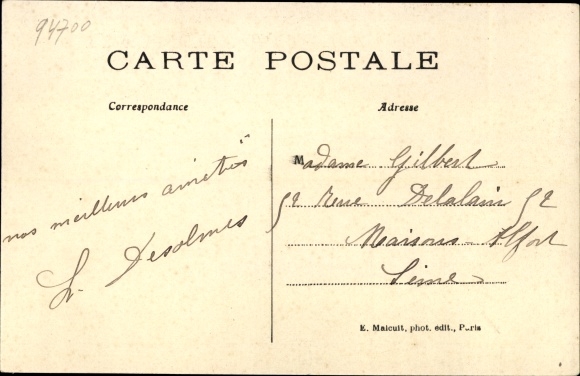 94700
CARTE POSTALE
Correspondance
Adresse
nos meilleurs amitiés
L. Desolmes
Madame Gilbert
52 Rue Delalain 52
Maisons-Alfort
Seine
E. Malcuit, phot. édit., Paris